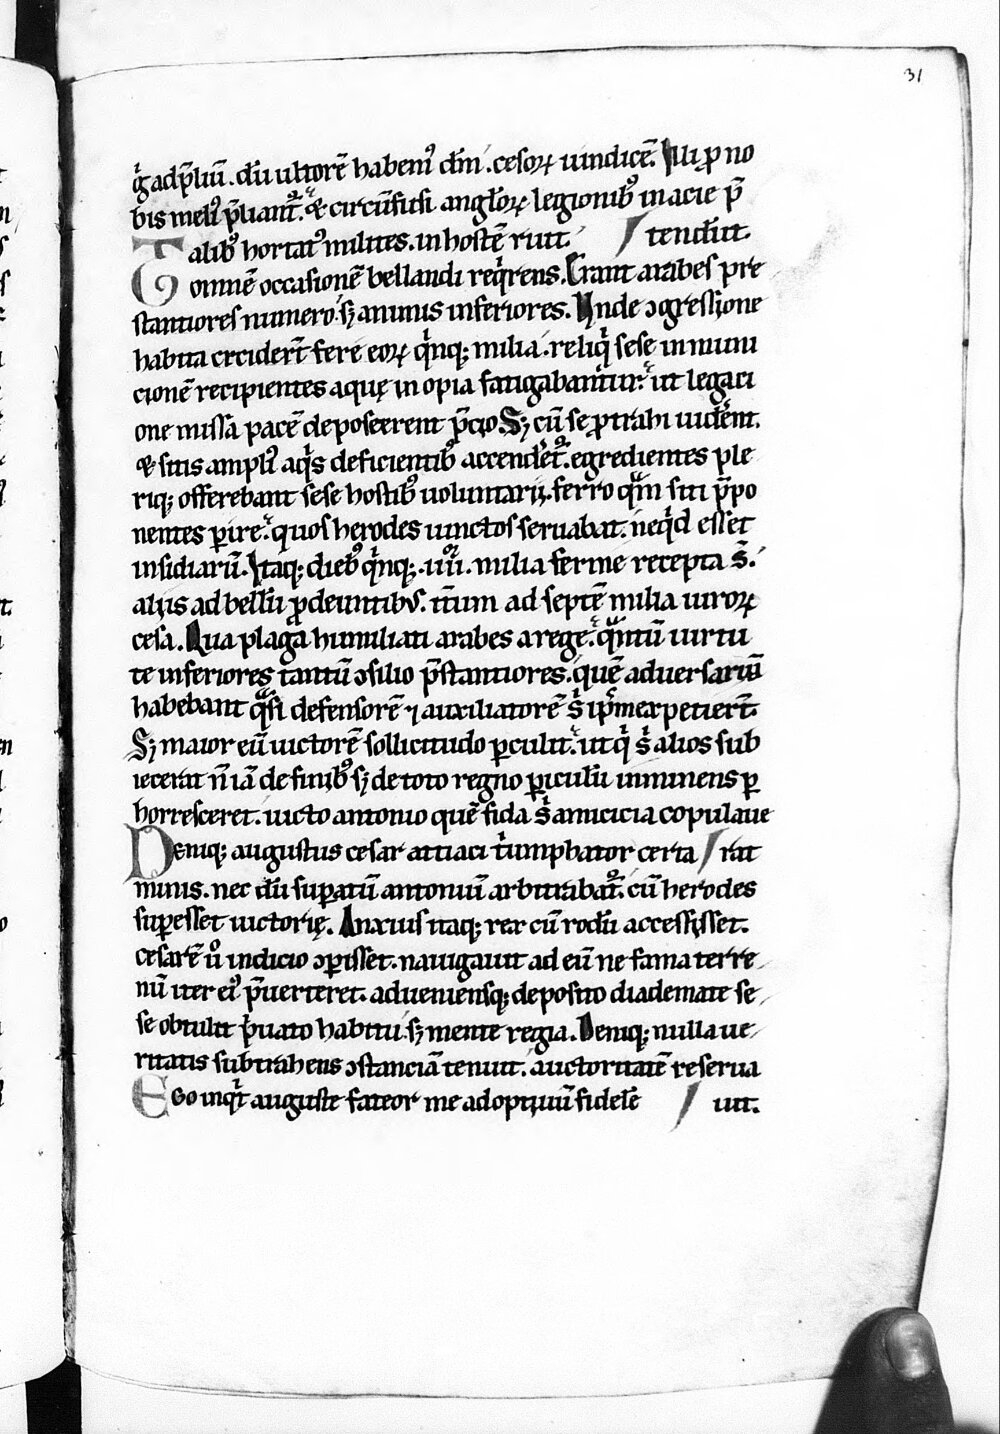 31
g̍ ad p̄liū. dū ultorē habem᷒ dm̄. cesoꝝ uindicē. Illi ꝓ no
bis meli᷒ p̄liant᷒. & circūfusi angl̄oꝝ legionib᷒ in acie p̄
Talib᷒ hortat᷒ milites. in hostē ruit. / tendūt.
omnē occasionē bellandi req̍rens. Erant arabes pre
stantiores numero. sꝫ animis inferiores. Unde ↄgressione
habita cecidert̄ fere eoꝝ q̍nqꝫ milia. reliq̍ sese in muni
cionē recipientes aquę inopia fatigabantur. ut legaci
one missa pacē deposcerent p̄cio Sꝫ cū se ꝓtrahi uider̄nt.
& sitis ampli᷒ aq̍s deficientib᷒ accenderet᷒. egredientes ple
riqꝫ offerebant sese hostib᷒ uoluntarij. ferro qᵃm siti p̄po
nentes ꝑire. quos herodes uinctos seruabat. neq̍d esset
insidiarū. Itaqꝫ dieb᷒ q̍nqꝫ. iiiiᵒʳ. milia ferme recepta s̄.
alijs ad bellū ꝓdeuntibus. it̄um ad septē milia uiroꝝ
cesa. Qua plaga humiliati arabes a rege. qᵃntū uirtu
te inferiores tantū ↄsilio p̄stantiores. quē aduersariū
habebant qᵃsi defensorē ⁊ auxiliatorē s̍ ip̄m expetiert̄.
Sꝫ maior eū uictorē sollicitudo ꝑculit. ut q̍ s̍ alios sub
iecerat n̄ iā de finib᷒ sꝫ de toto regno ꝑiculū imminens ꝑ
horresceret. uicto antonio quē fida s̍ amicicia copulaue
Deniqꝫ augustus cesar attiaci t̍umphator certa / rat
minis. nec dū suꝑatū antoniū arbitrabat᷒. cū herodes
suꝑesset uictorię. Anxius itaqꝫ rex cū rodū accessisset.
cesarē ů indicio ↄꝑisset. nauigauit ad eū ne fama terre
nū iter ei᷒ p̄uerteret. adueniensqꝫ deposito diademate se
se obtulit p̍uato habitu. sꝫ mente regia. Deniqꝫ nulla ue
ritatis subtrahens ↄstanciā tenuit. auctoritatē reserua
Ego inq̍t auguste fateor me adoptiuū fidelē / uit.